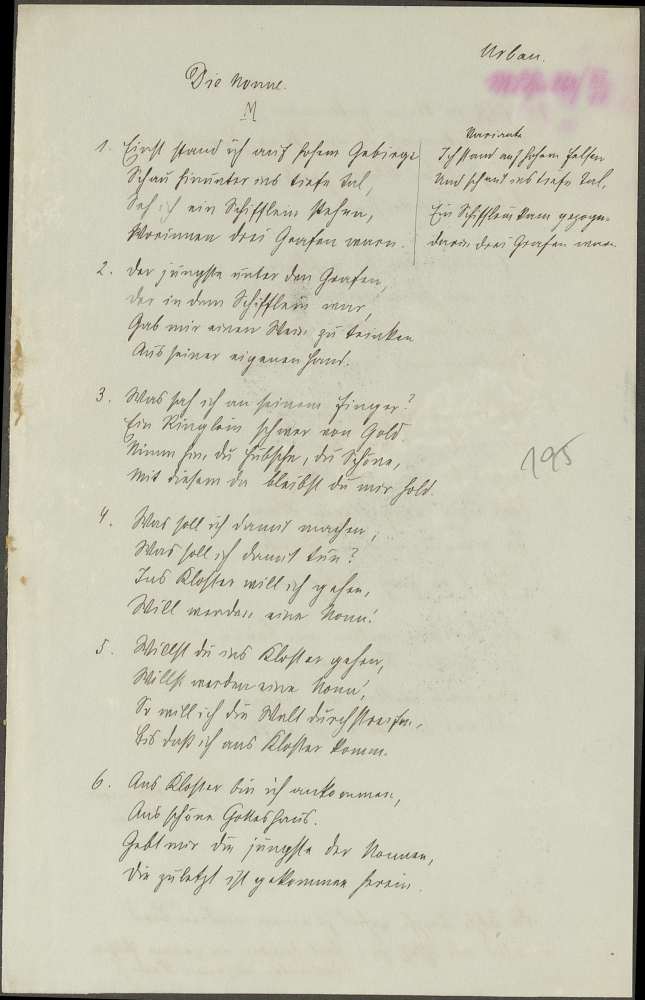 Urban.
Die Nonne.
M
1. Einst stand ich auf hohem Gebirge
Schau hinunter ins tiefe Tal,
Seh ich ein Schifflein stehen,
Worinnen drei Grafen waren.
Variante
Ich stand auf hohem Felsen
Und schaut ins tiefe Tal,
Ein Schifflein kam gezogen
darin drei Grafen waren
2. Der jüngste unter den Grafen,
der in dem Schifflein war,
Gab mir einen Wein zu trinken
Aus seiner eigenen Hand.
3. Was sah ich an seinem Finger?
Ein Ringlein schwer von Gold.
Nimm hin, du Hübsche, du Schöne,
Mit diesem da bleibst du mir hold.
195
4. Was soll ich damit machen,
Was soll ich damit tun?
Ins Kloster will ich gehen,
Will werden eine Nonn!
5. Willst du ins Kloster gehen,
Willst werden eine Nonn',
So will ich die Welt durchstreifen,
Bis daß ich ans Kloster komm.
6. Ans Kloster bin ich ankommen,
Ans schöne Gotteshaus.
Gebt mir die jüngste der Nonnen,
Die zuletzt ist gekommen herein.